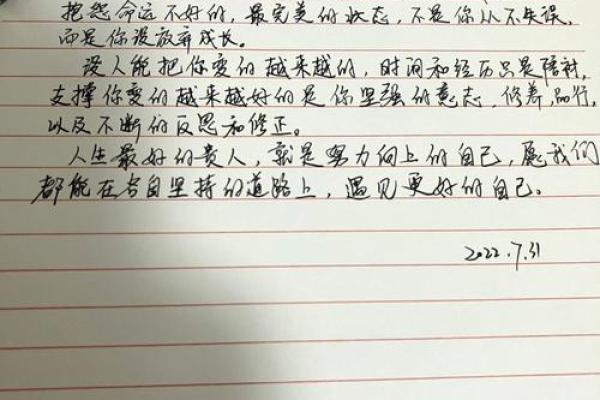 抱怨命运不好的，最完美的状态，不是你从不失误，
而是你没放弃成长。
没人能把你变的越来越的，时间和经历只是陪衬，
支撑你变的越来越好的是你坚强的意志、修养、品行，
以及不断的反思和修正。
人生最好的贵人，就是努力向上的自己，愿我们
都能在各自坚持的道路上，遇见更好的自己。
2022.7.31